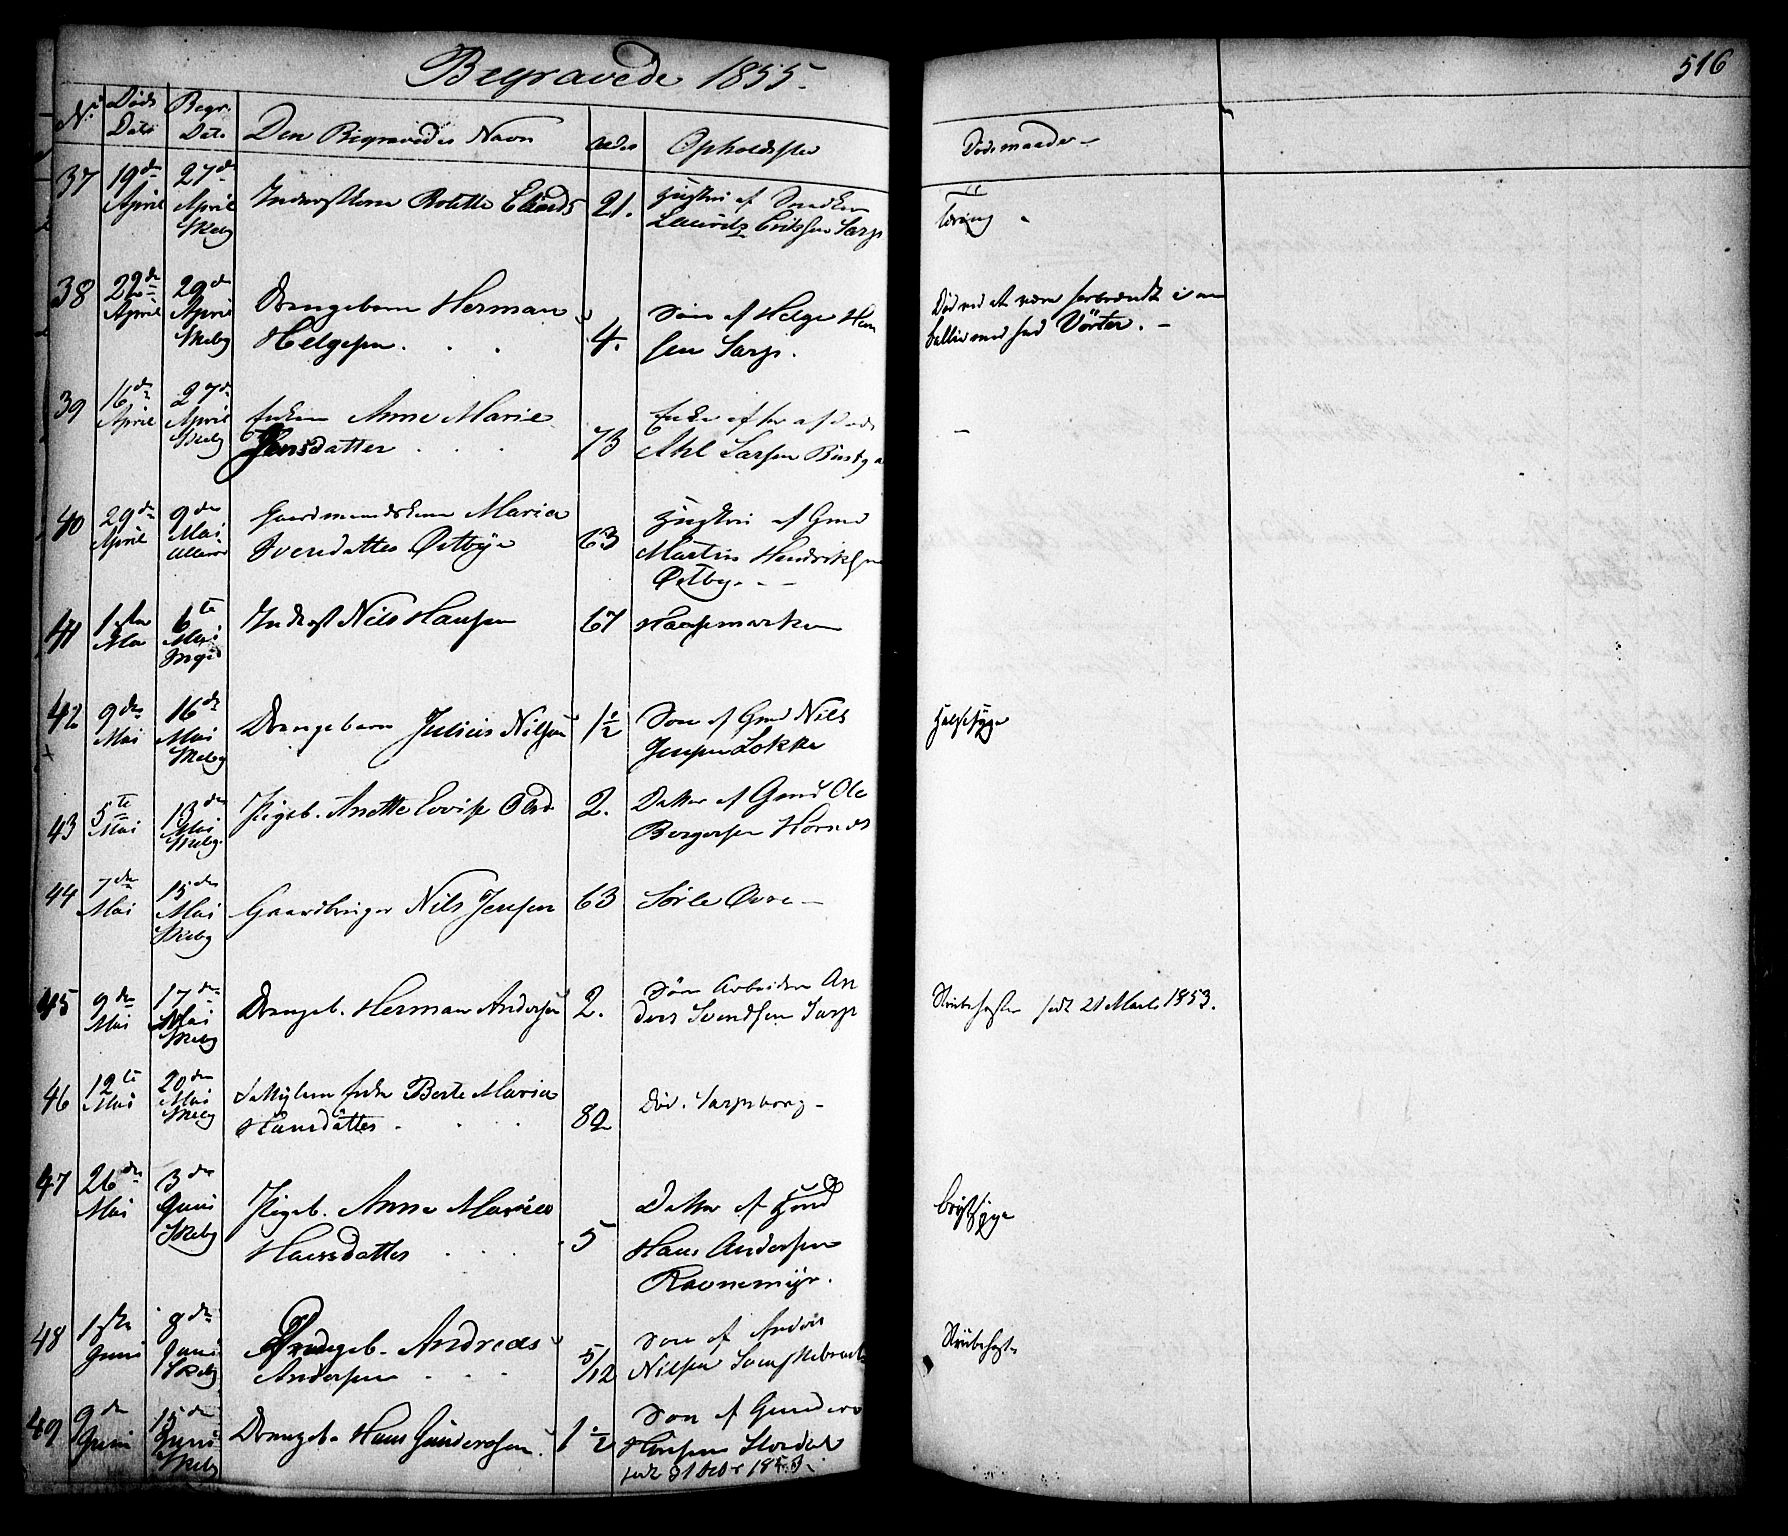 Begravede 1855.
516
No Døds Dato Begr. Dato Den Begravedes Navn Alder Opholdsted Dødsmaade
37 19de April 27de April Skeby Inderstkone Bolette 21. Hustru af
Lauritz Eriksen Sarp Tæring
38 22de April 29de April Skeby Drengebarn Herman
Helgesen. 4. Søn af Helge Han
sen Sarp. Død ved at være forbrændt i en
Ballie med hed Vörter. -
39 16de April 27de April Skeby Enken Anne Marie
Jensdatter 73 Enke efter afdøde
Larsen -
40 29de April 9de Mai Gaardmandskone Maria
Iversdatter Østbye 63 Hustru af Gmd
Martin Hendriksen
Østby. - -
41 1ste Mai 6te Mai Inderst Nils Hansen 67 Hafsmarken
42 9de Mai 16de Mai Skeby Drengebarn Julius Nilsen 1½ Søn af Gmd Nils
Jensen Lokke Halssyge
43 5te Mai 13de Mai Skeby. Pigeb. Anette Lovise Olsd 2. Datter af Gmd Ole
Borgersen Hornes
44 7de Mai 15de Mai Skeby Gaardbruger Nils Jensen 63 Sørle Øvre -
45 9de Mai 17de Mai Skeby Drengeb. Herman Andersen 2. Søn Arbeider An
ders Svendsen Sarp Strubehoste født 21 Marts 1853.
46 12te Mai 20de Mai Skeby Enke Berte Maria
Hansdatter 82 Død i Sarpsborg -
47 26de Mai 3de Juni Skeby Pigeb. Anne Marie
Hansdatter 5 Datter af Hmd
Hans Andersen
Ravnemyr. Brystsyge
48 1ste Juni 8de Juni Skeby Drengeb. Andreas
Andersen 5/12 Søn af Anders
Nilsen Strubehoste
49 9de Juni 15de Juni Skeby Drengeb. Hans Gundersen. 1½ Søn af Gunder
Hansen Stordal